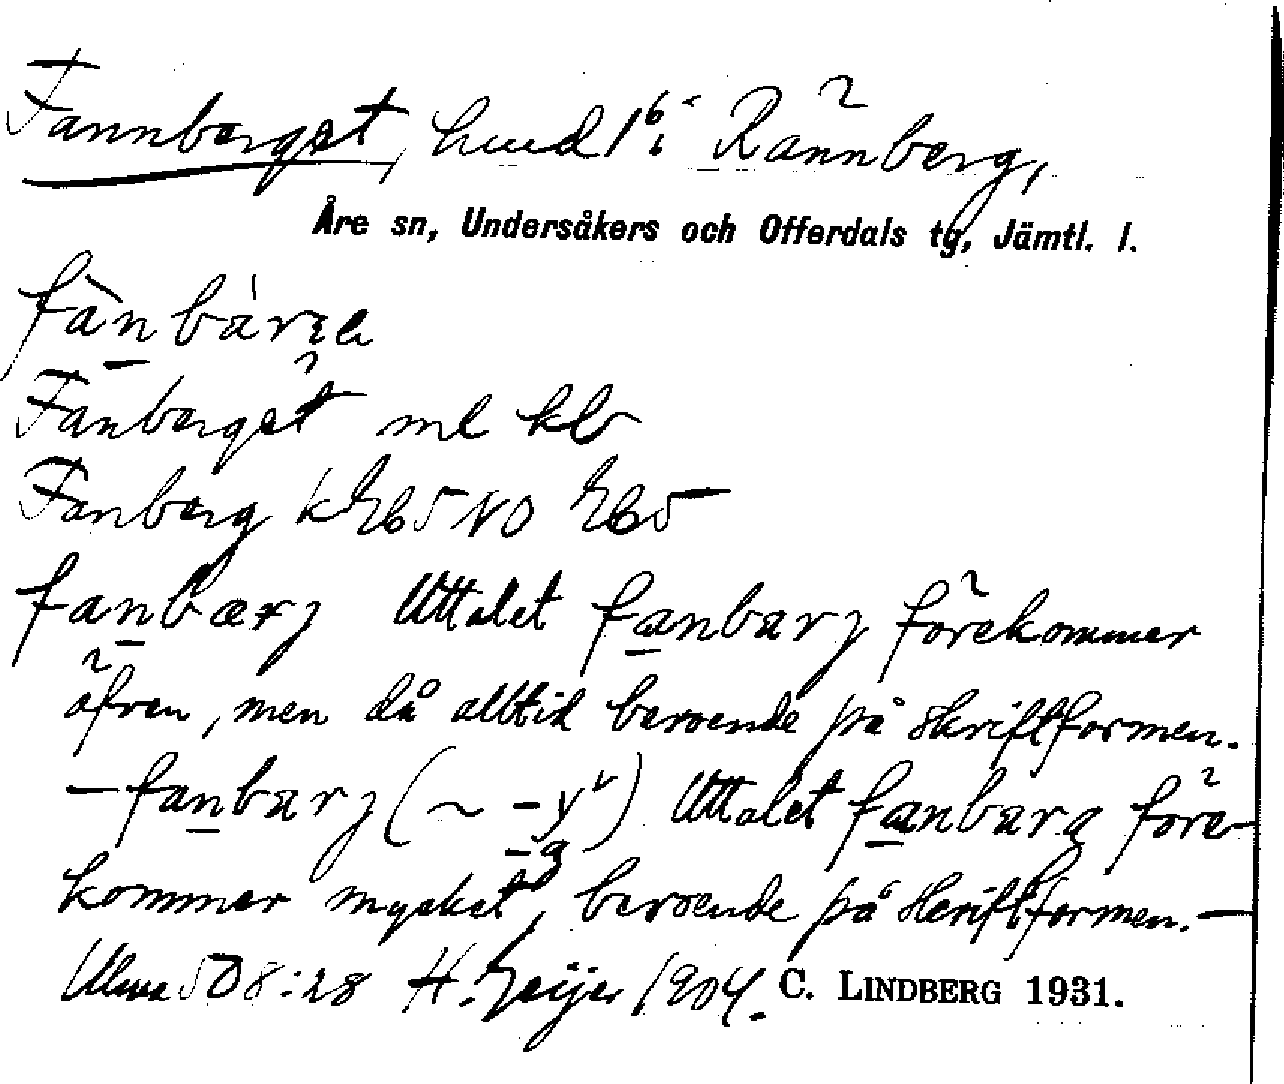 Fannberget, hmd 1⁶ i Rännberg,
Åre sn, Undersåkers och Offerdals tg, Jämtl. l.
fànbàrʒe
Fanberget ml kb
Fanberg NO
fanbærj Uttalet fanbarj förekommer
äfven, men då alltid beroende på skriftformen.
– fanbarj (~ -y) Uttalet fanbarg före-
-g
kommer mycket, beroende på skriftformen. –
Ulma 508:28 H. Geijer 1904. C. LINDBERG 1931.